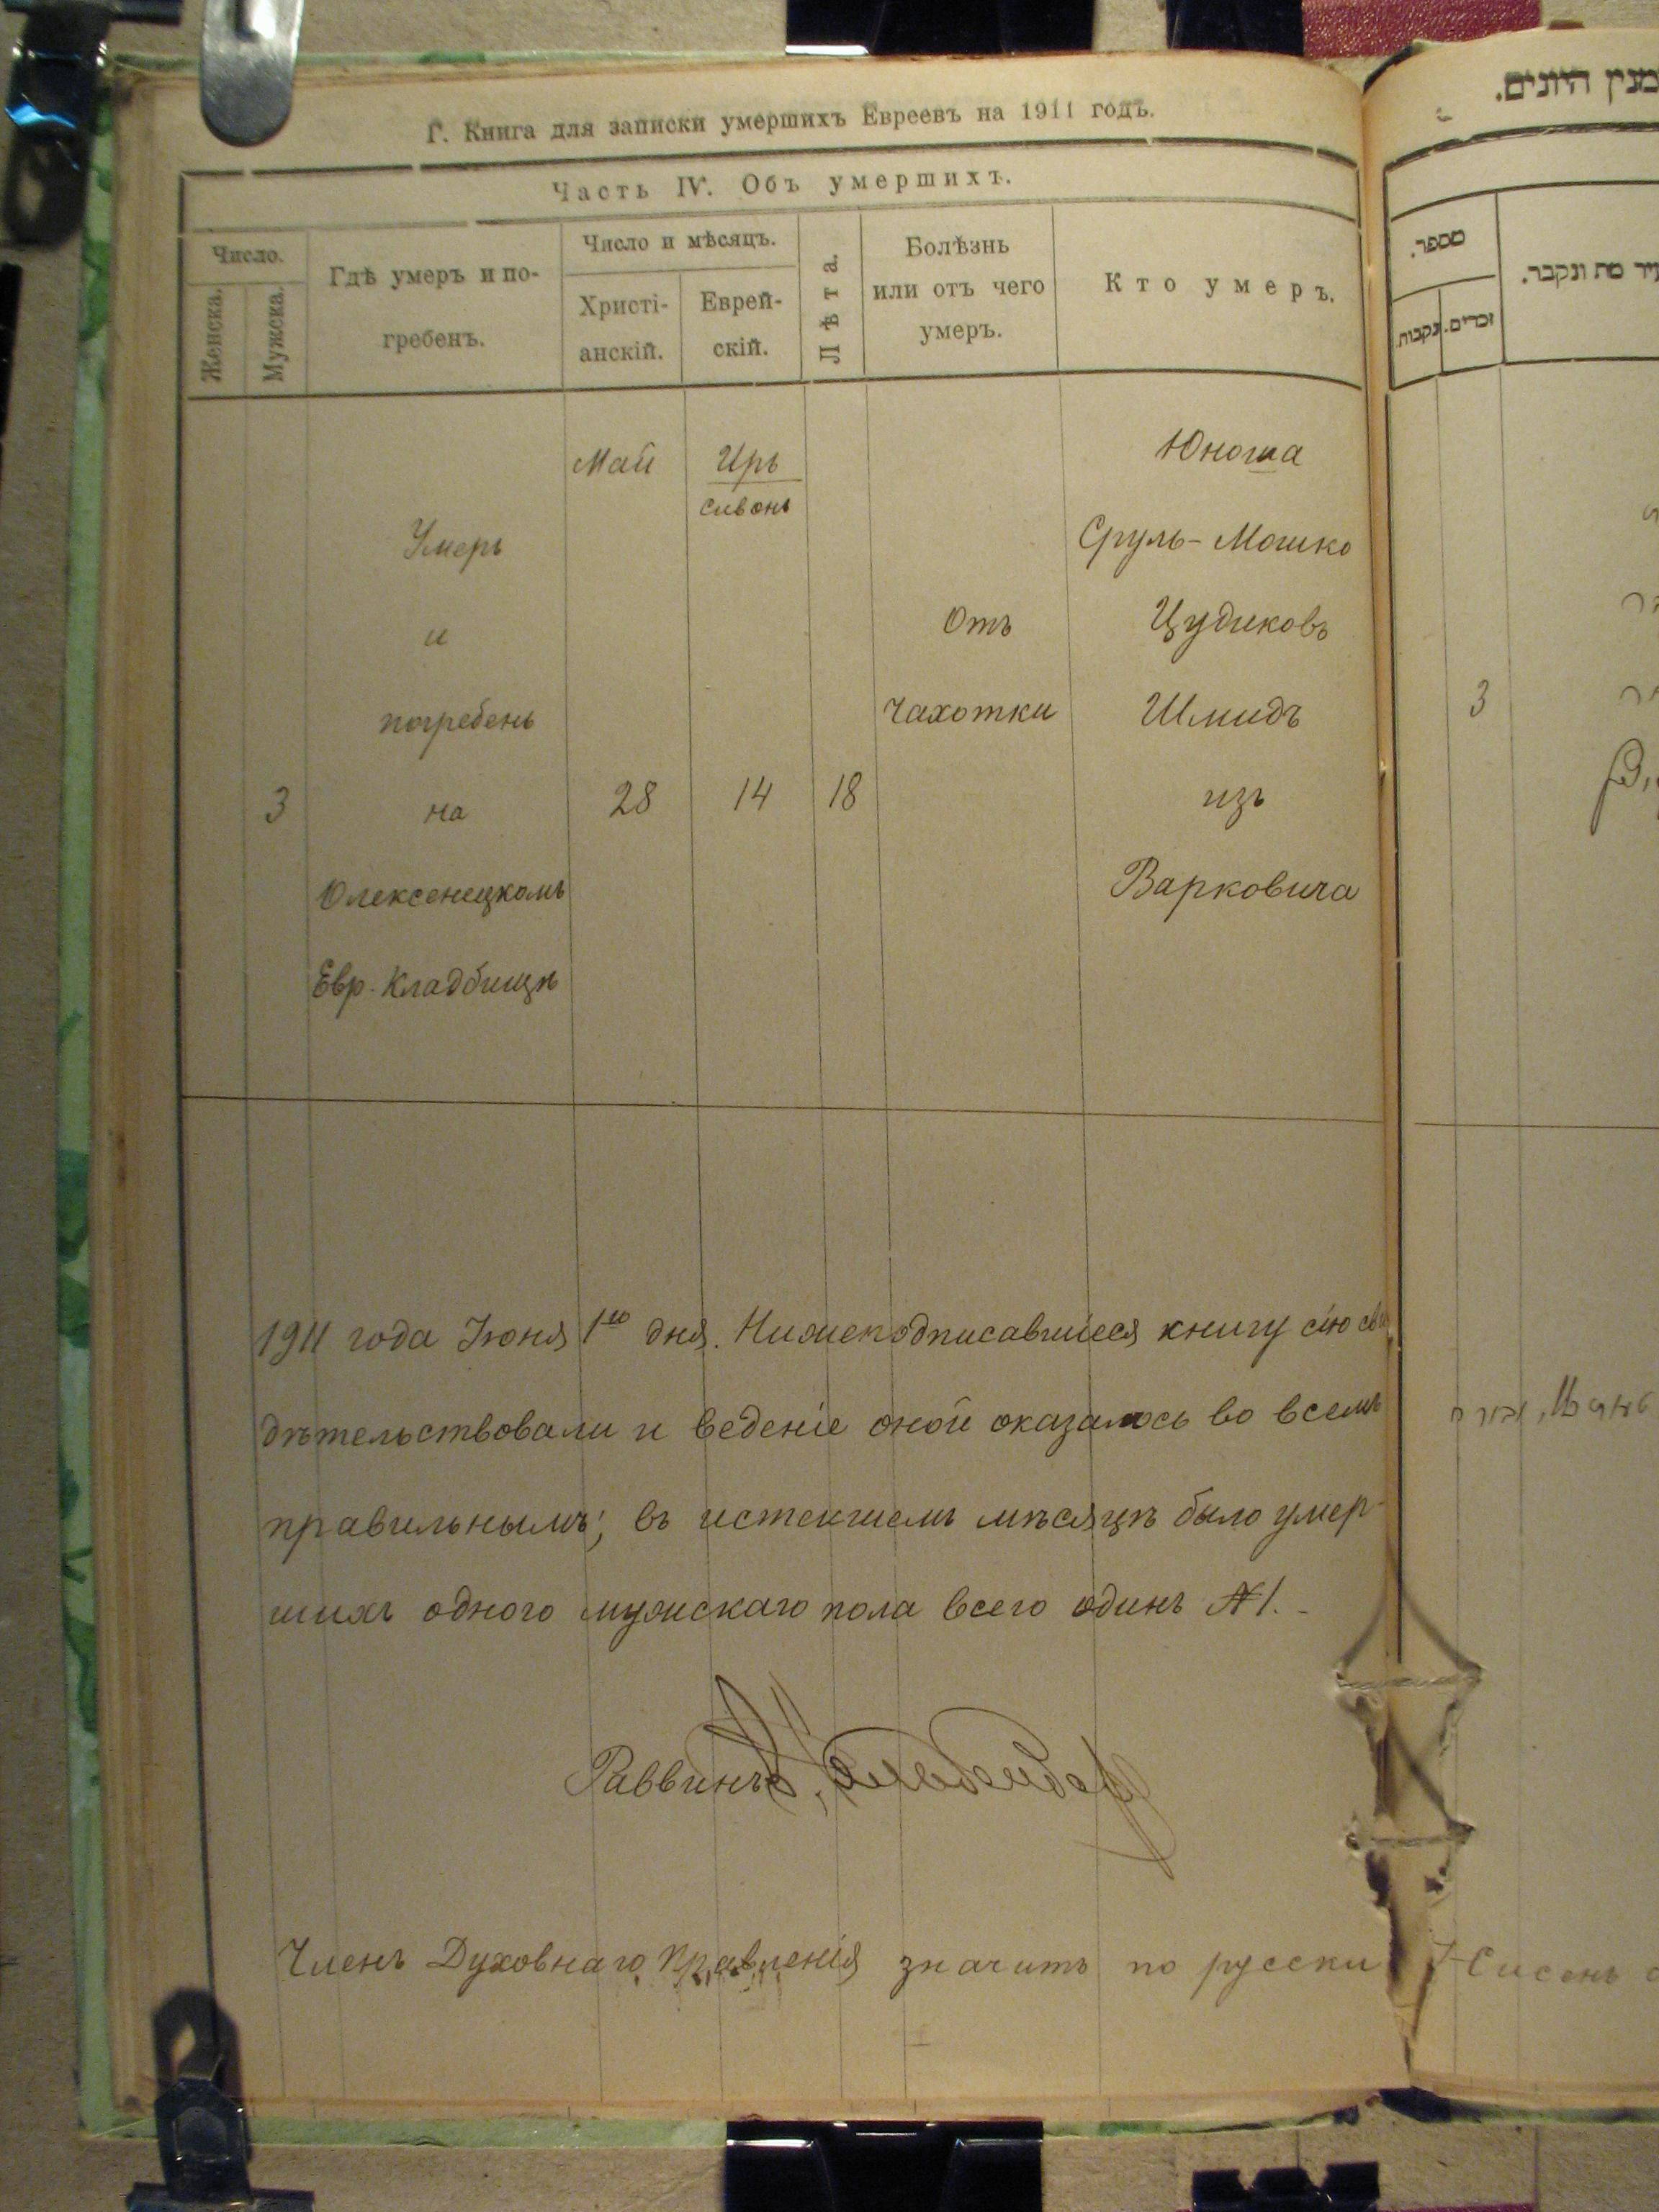 Г. Книга для записки умершихъ Евреевъ на 1911 годъ.
Часть IV. Объ умершихъ.
Число.
Женска.
Мужска.
Гдѣ умеръ и по-
гребенъ.
Число и мѣсяцъ.
Христі-
анскій.
Еврей-
скій.
Лѣта.
Болѣзнь
или отъ чего
умеръ.
Кто умеръ.
Май
Иръ
сивонъ
Юноша
Умеръ
Сруль-Мошко
и
Отъ
Цудиковъ
погребенъ
чахотки
Шмидъ
3 на 28 14 18 изъ
Олексенецкомъ
Варковича
Евр. Кладбищѣ
1911 года Іюня 1го дня. Нижеподписавшіеся книгу сію сви
дѣтельствовали и веденіе оной оказалось во всемъ
правильнымъ; въ истекшемъ мѣсяцѣ было умер-
шихъ одного мужскаго пола всего одинъ №1.-
Раввинъ
Членъ Духовнаго Правленія значитъ по русски Нисонъ
היונים.
מספר.
נקבות.
זכרים.
מת ונקבר.
3